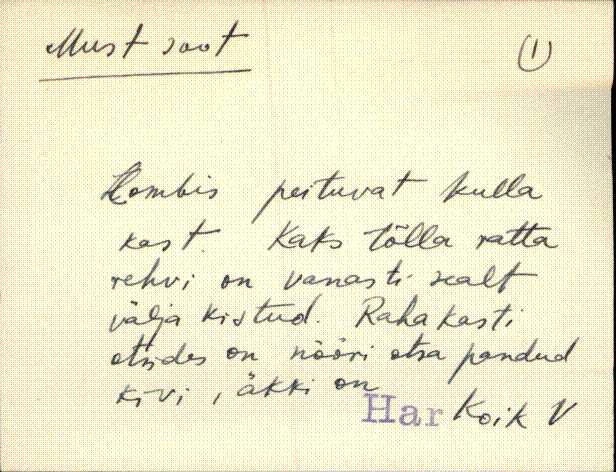 Must soot
(1)
Kombis peituvat kulla
kast. Kaks tõlla ratta
rehvi on vanasti sealt
välja kistud. Rahakasti
otsides on nööri otsa pandud
kivi, äkki on
Har Koik V